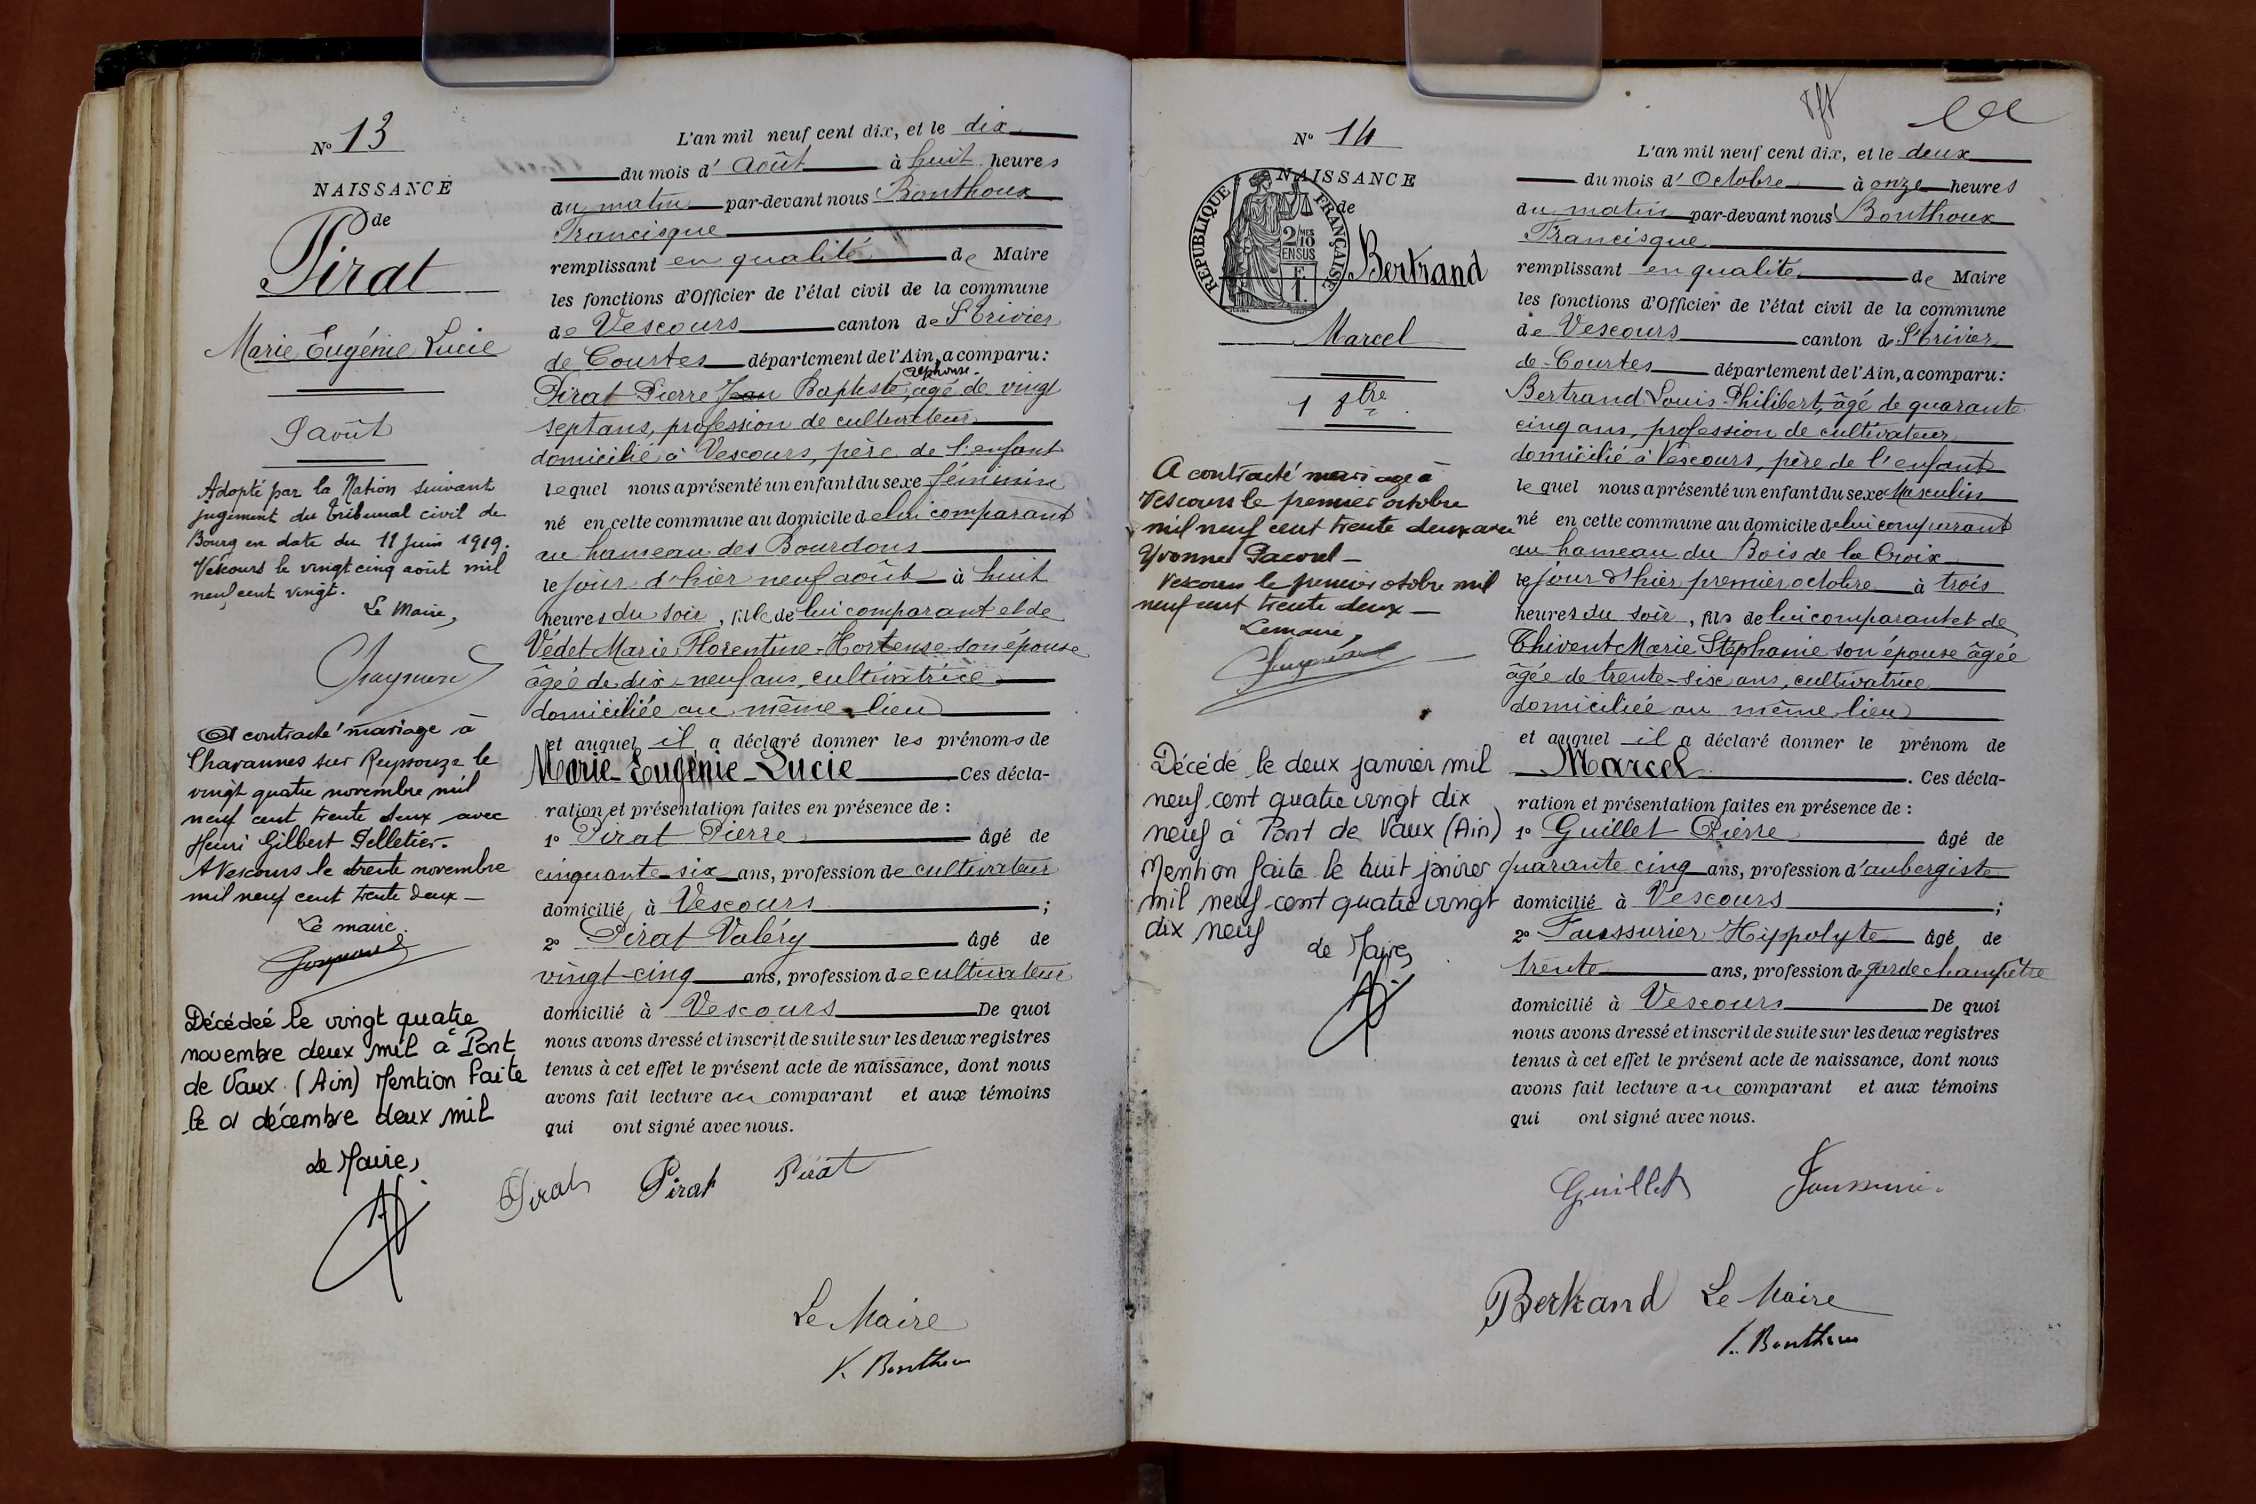 N° 13
NAISSANCE
de
Pirat
Marie Eugénie Lucie
9 août
Adopté par la Nation suivant
jugement du Tribunal civil de
Bourg en date du 11 Juin 1919.
Vescours le vingt cinq août mil
neuf cent vingt.
Le Maire,
A contracté mariage à
Chavannes sur Reyssouze le
vingt quatre novembre mil
neuf cent trente deux avec
Henri Gilbert Pelletier.
A Vescours le trente novembre
mil neuf cent trente deux —
Le maire.
Décédeé le vingt quatre
novembre deux mil à Pont
de Vaux (Ain) Mention faite
le décembre deux mil
Le Maire,
L'an mil neuf cent dix, et le dix
du mois d'août à huit heures
du matin par-devant nous Bonthoux
Francisque
remplissant en qualité de Maire
les fonctions d'Officier de l'état civil de la commune
de Vescours canton de St Trivier
de Courtes département de l'Ain, a comparu:
Alphonse
Pirat Pierre Jean Baptiste, âgé de vingt
sept ans, profession de cultivateur
domicilié à Vescours, père de l'enfant
lequel nous a présenté un enfant du sexe féminin
né en cette commune au domicile de lui comparant
au hameau des Bourdons
le jour d'hier neuf août à huit
heures du soir, fille de lui comparant et de
Védet Marie Florentine-Hortense son épouse
âgée de dix-neuf ans, cultivatrice
domiciliée au même lieu
et auquel il a déclaré donner les prénoms de
Marie-Eugénie-Lucie Ces décla-
ration et présentation faites en présence de :
1° Pirat Pierre âgé de
cinquante-six ans, profession de cultivateur
domicilié à Vescours ;
2° Pirat Valéry âgé de
vingt-cinq ans, profession de cultivateur
domicilié à Vescours De quoi
nous avons dressé et inscrit de suite sur les deux registres
tenus à cet effet le présent acte de naissance, dont nous
avons fait lecture au comparant et aux témoins
qui ont signé avec nous.
Pirat Pirat Pirat
Le Maire
F. Bonthoux
N° 14
NAISSANCE
de
RÉPUBLIQUE FRANÇAISE
2/10 MES
EN SUS
1 F.
Bertrand
Marcel
1 8bre
A contracté mariage à
Vescours le premier octobre
mil neuf cent trente deux avec
Yvonne Pacoret —
Vescours le premier octobre mil
neuf cent trente deux —
Le maire,
Décédé le deux janvier mil
neuf cent quatre vingt dix
neuf à Pont de Vaux (Ain)
Mention faite le huit janvier
mil neuf cent quatre vingt
dix neuf
Le Maire,
L'an mil neuf cent dix, et le deux
du mois d'Octobre à onze heures
du matin par-devant nous Bonthoux
Francisque
remplissant en qualité de Maire
les fonctions d'Officier de l'état civil de la commune
de Vescours canton de St Trivier
de Courtes département de l'Ain, a comparu:
Bertrand Louis Philibert, âgé de quarante
cinq ans, profession de cultivateur
domicilié à Vescours, père de l'enfant
lequel nous a présenté un enfant du sexe Masculin
né en cette commune au domicile de lui comparant
au hameau du Bois de la Croix
le jour d'hier premier octobre à trois
heures du soir, fils de lui comparant et de
Thivent Marie Stéphanie son épouse âgée
âgée de trente-six ans, cultivatrice
domiciliée au même lieu
et auquel il a déclaré donner le prénom de
Marcel. Ces décla-
ration et présentation faites en présence de :
1° Guillet Pierre âgé de
quarante cinq ans, profession d'aubergiste
domicilié à Vescours ;
2° Hippolyte âgé de
trente ans, profession de garde champêtre
domicilié à Vescours De quoi
nous avons dressé et inscrit de suite sur les deux registres
tenus à cet effet le présent acte de naissance, dont nous
avons fait lecture au comparant et aux témoins
qui ont signé avec nous.
Guillet
Bertrand Le Maire
F. Bonthoux